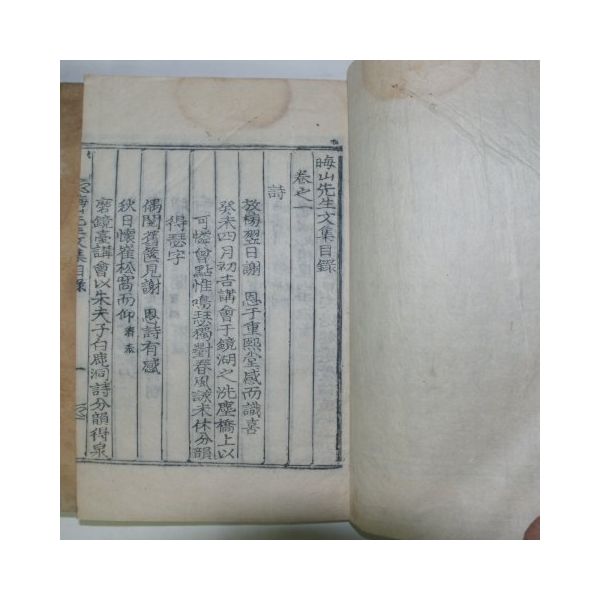 晦山先生文集目錄
卷之一
詩
放榜翌日謝 恩于重熙堂感而識喜
癸未四月初吉講會于鏡湖之洗塵橋上以
可憐曾點惟鳴瑟獨對春風詠未休分韻
得瑟字
偶閱舊篋見謝 恩詩有感
秋日懷崔松窩而仰
磨鏡臺講會以朱夫子白鹿洞詩分韻得泉
晦山先生文集目錄 一